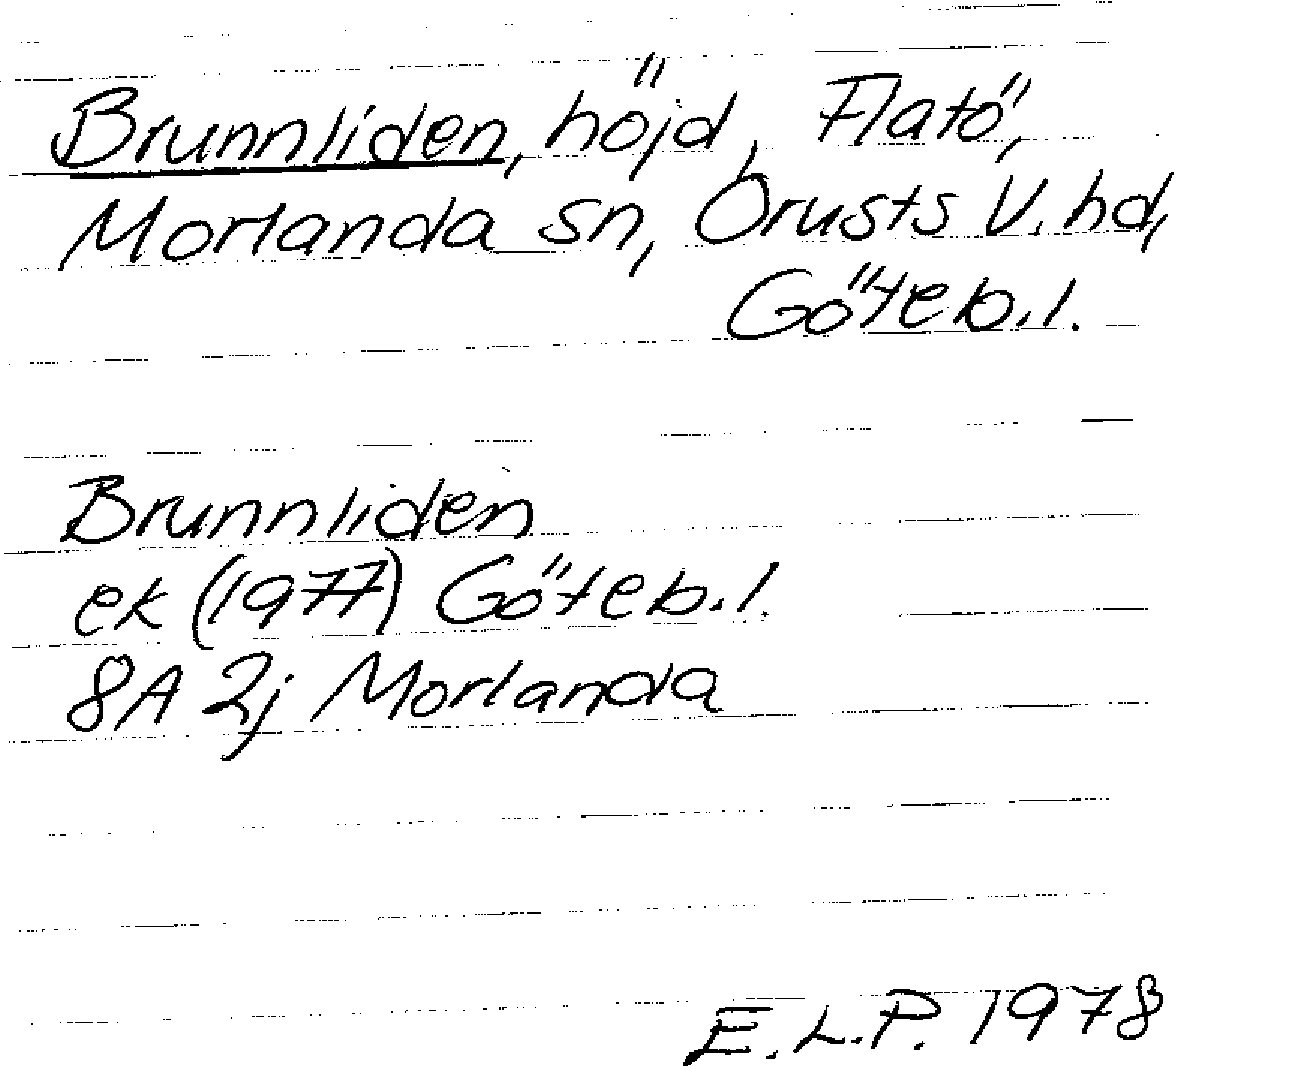 Brunnliden, höjd, Flatö,
Morlanda sn, Orusts V. hd,
Göteb.l.
Brunnliden
ek (1977) Göteb.l.
8A 2j Morlanda
E.L.P. 1978